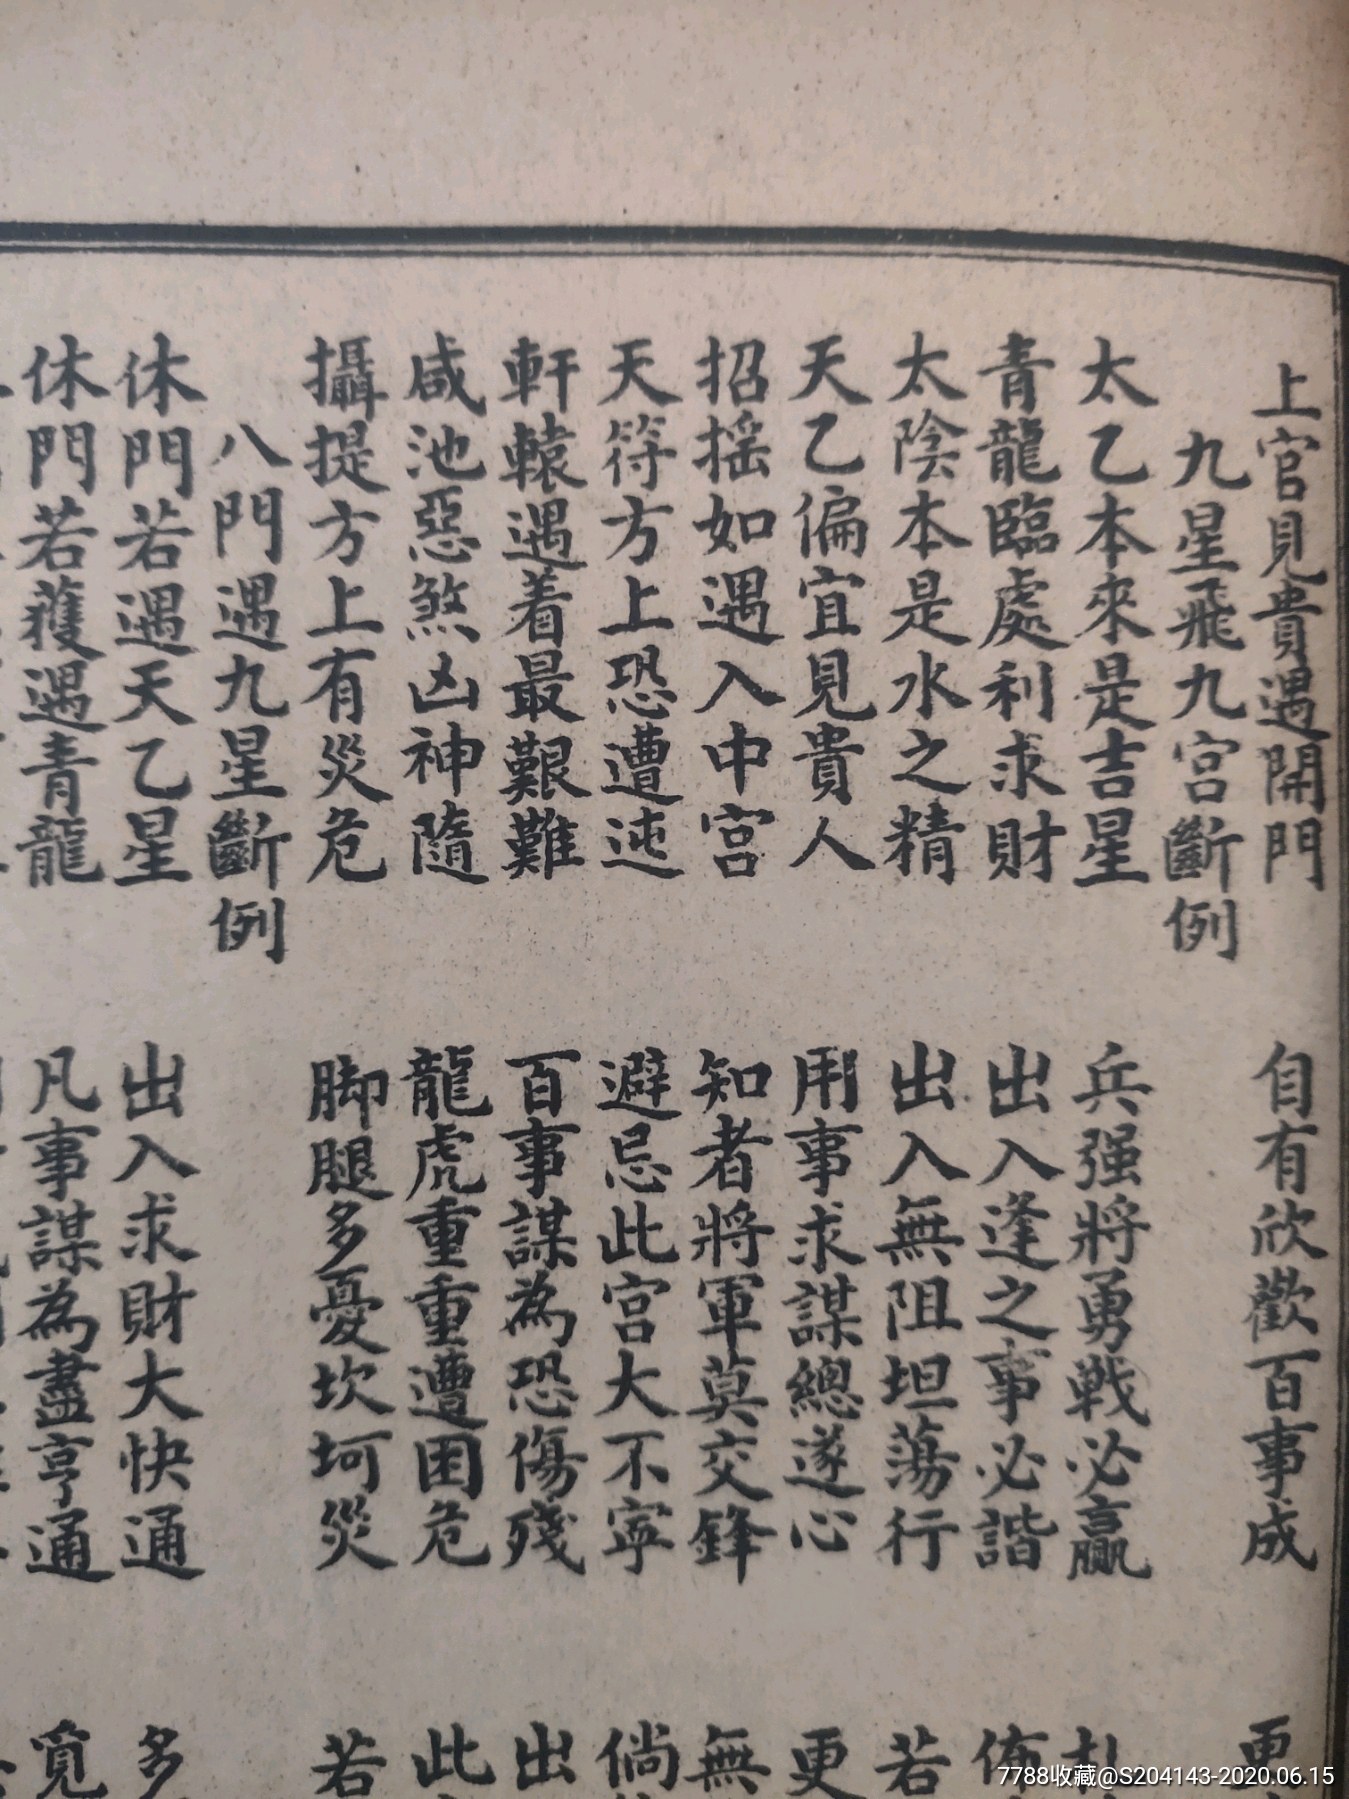 上官見貴遇開門 自有欣歡百事成 更
九星飛九宮斷例
太乙本來是吉星 兵强將勇戰必贏
青龍臨處利求財 出入逢之事必諧
太陰本是水之精 出入無阻坦蕩行 若
天乙偏宜見貴人 用事求謀總遂心 更
招摇如遇入中宮 知者將軍莫交鋒 無
天符方上恐遭迍 避忌此宮大不寧 倘
軒轅遇着最艱難 百事謀為恐傷殘 出
咸池惡煞凶神隨 龍虎重重遭困危 此
攝提方上有災危 脚腿多憂坎坷災 若
八門遇九星斷例
休門若遇天乙星 出入求財大快通 多
休門若獲遇青龍 凡事謀為盡亨通 覓
7788收藏@S204143-2020.06.15